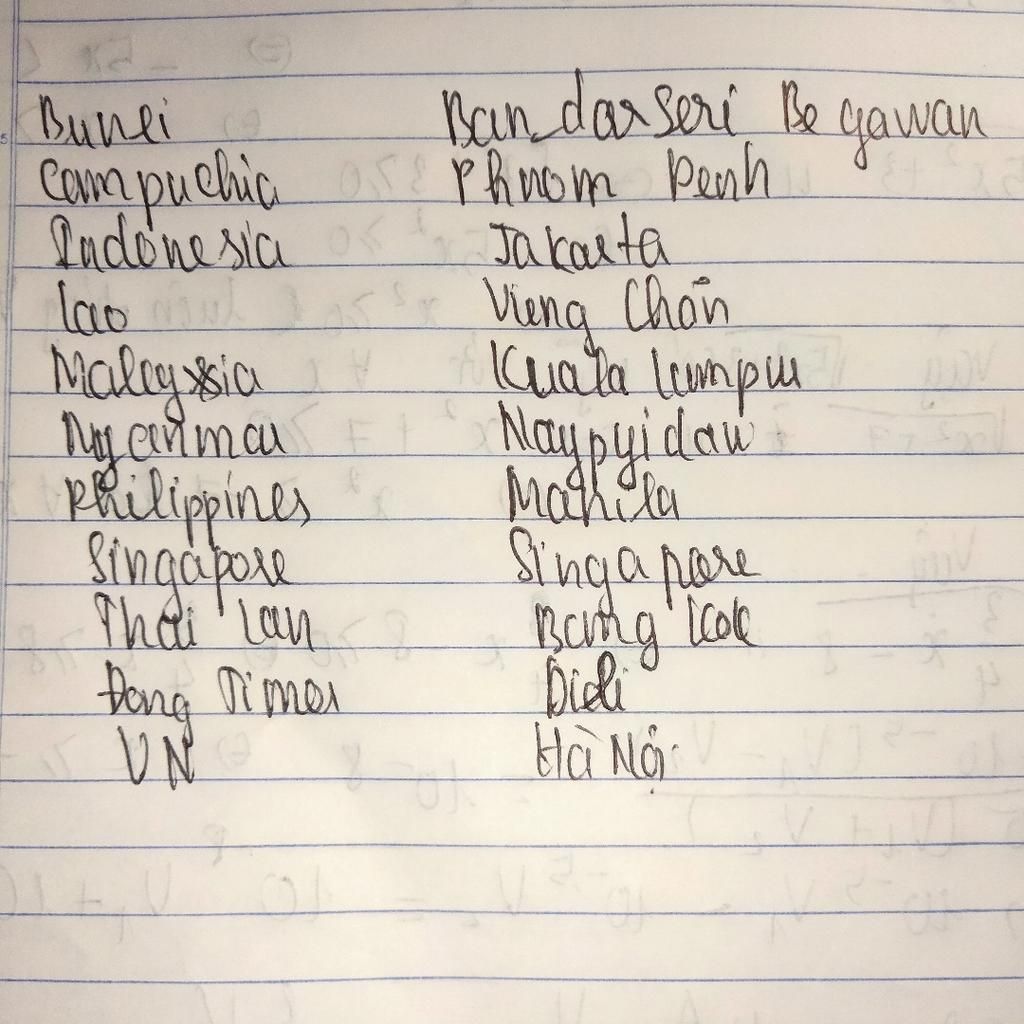 Bunei Ban_dar Seri Be gawan
Campuchia Phnom Penh
Indonesia Jakarta
Lao Viêng Chăn
Malaysia Kuala lumpur
Myanmau Naypyidaw
Philippines Manila
Singapore Singapore
Thái Lan Băng Kok
Đong Timor Dieli
VN Hà Nội